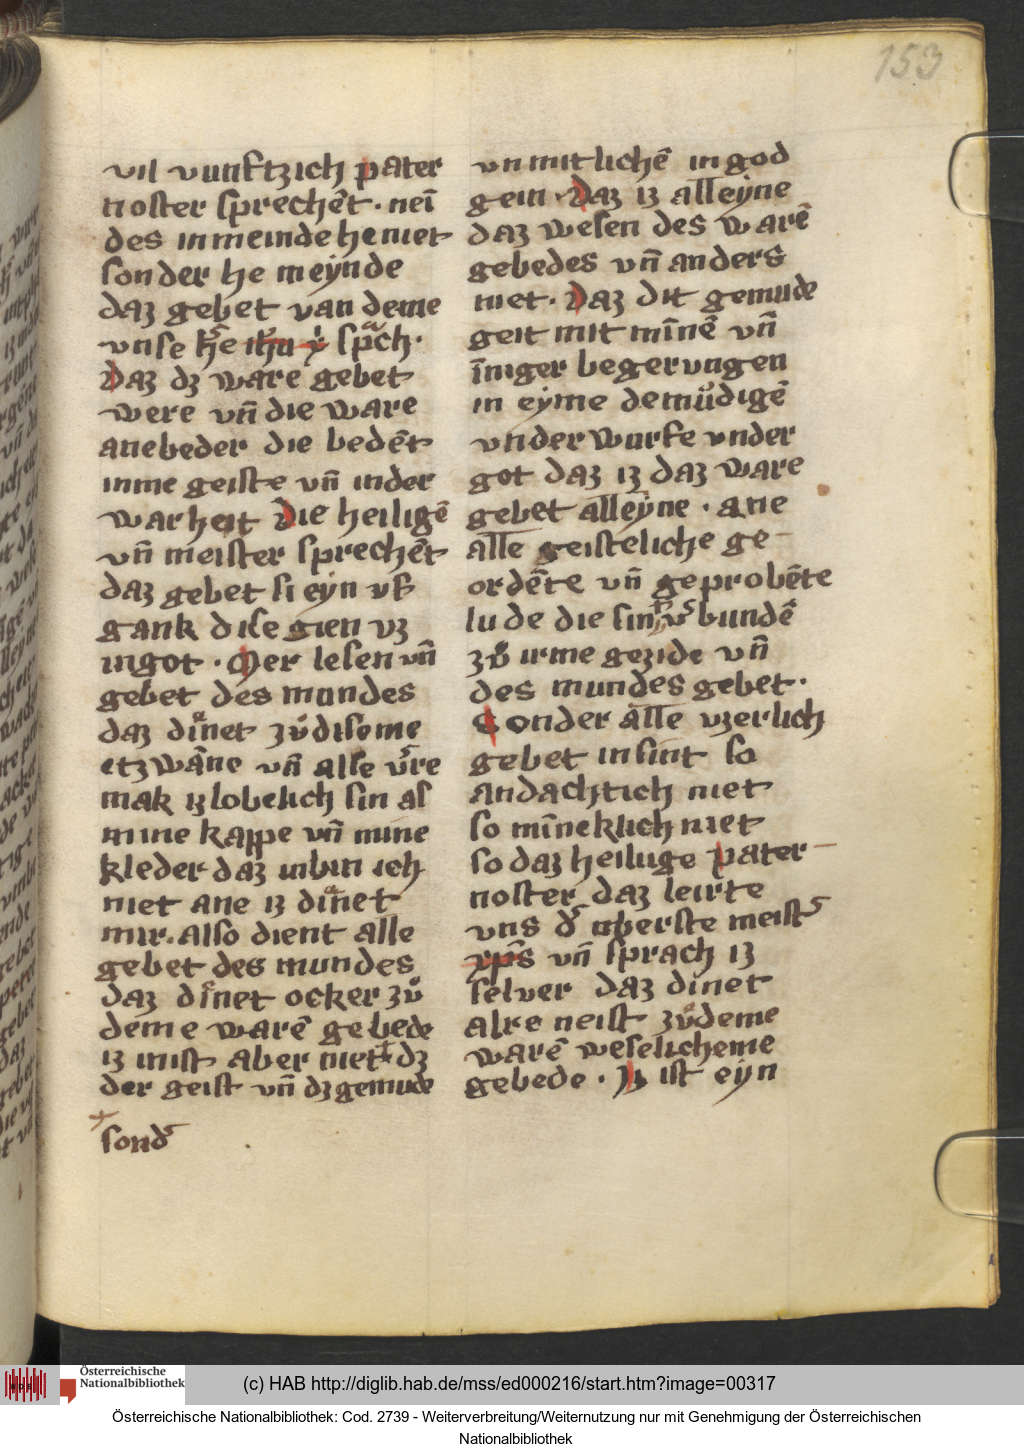 153
vil vunftzich pater
noster sprechēt · neī
des inmeinde he niet
sonder he meynde
daz gebet van deme
vnse h̄e ihū x̄ sp̄ch ·
Daz dz ware gebet
were vn̄ die ware
anebeder die bedēt
inme geiste vn̄ inder
warheit Die heiligē
vn̄ meister sprechēt
daz gebet si eyn vf
gank dise gien vz
ingot · Mer lesen vn̄
gebet des mundes
daz dinet zuͦ diseme
etzwāne vn̄ alse vͦre
mak iz lobelich sin als
mine kappe vn̄ mine
kleder daz inbin ich
niet ane iz dinet
mir. also dient alle
gebet des mundes
daz dinet ocker zuͦ
deme warē gebede
iz inist aber niet dz
der geist vn̄ dz gemude
sond᷑
vnmitlichē in god
gein · Daz iz alleyne
daz wesen des warē
gebedes vn̄ anders
niet · Daz dit gemude
geit mit mīnē vn̄
īniger begerungen
in eyme demuͦdigē
vnderwurfe vnder
got daz iz daz ware
gebet alleyne · ane
alle geisteliche ge-
ordēte vn̄ geprobēte
lude die sint v᷑bundē
zuͦ irme gezide vn̄
des mundes gebet ·
Sonder alle vzerlich
gebet insint so
andachtich niet
so mīneklich niet
so daz heiluge pater-
noster daz leirte
vns d᷑ oberste meist᷑
xp̄s vn̄ sprach iz
selver daz dinet
alre neist zuͦ deme
warē weselicheme
gebede · Iz ist eyn
Österreichische
Nationalbibliothek
(c) HAB http://diglib.hab.de/mss/ed000216/start.htm?image=00317
Österreichische Nationalbibliothek: Cod. 2739 - Weiterverbreitung/Weiternutzung nur mit Genehmigung der Österreichischen
Nationalbibliothek